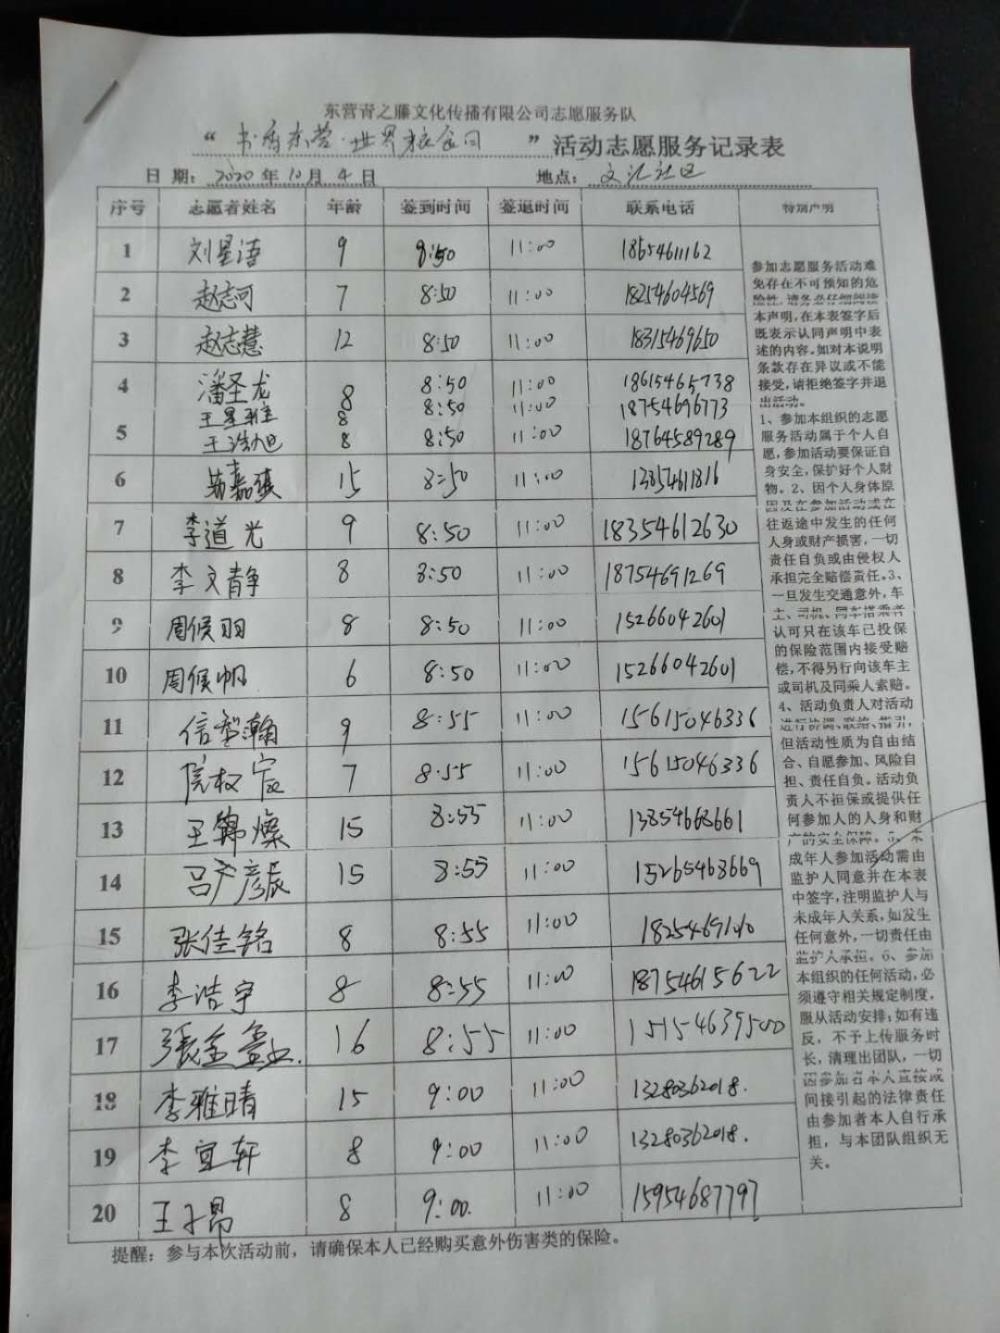 东营青之藤文化传播有限公司志愿服务队
“书香东营·世界粮食日”活动志愿服务记录表
日 期：2020年10月4日 地点：文汇社区
序号 志愿者姓名 年龄 签到时间 签退时间 联系电话 特别声明
1 刘星语 9 8:50 11:00 18654611162
2 赵志可 7 8:50 11:00 18254604569
3 赵志慧 12 8:50 11:00 18315469650
4 潘圣龙 8 8:50 11:00 18615465738
8 8:50 11:00 18754696773
5 王浩旭 8 8:50 11:00 18764589289
6 嘉琪 15 8:50 11:00 13854611816
7 李道光 9 8:50 11:00 18354612630
8 李文静 8 8:50 11:00 18754691269
9 周候羽 8 8:50 11:00 15266042601
10 周候帆 6 8:50 11:00 15266042601
11 信智瀚 9 8:55 11:00 15615046336
12 信权宸 7 8:55 11:00 15615046336
13 王锦燦 15 8:55 11:00 13854668661
14 吕彦辰 15 8:55 11:00 15265468669
15 张佳铭 8 8:55 11:00
16 李浩宇 8 8:55 11:00 18754615622
17 張金 16 8:55 11:00 15154639500
18 李雅晴 15 9:00 11:00 13280362018.
19 李宜轩 8 9:00 11:00 13280362018.
20 王子昂 8 9:00. 11:00 15954687797
参加志愿服务活动难
免存在不可预知的危
险性，请务必仔细阅读
本声明，在本表签字后
既表示认同声明中表
述的内容。如对本说明
条款存在异议或不能
接受，请拒绝签字并退
出活动。
1、参加本组织的志愿
服务活动属于个人自
愿，参加活动要保证自
身安全，保护好个人财
物。2、因个人身体原
因及在参加活动或在
往返途中发生的任何
人身或财产损害，一切
责任自负或由侵权人
承担完全赔偿责任。3、
一旦发生交通意外，车
主、司机、同车搭乘者
认可只在该车已投保
的保险范围内接受赔
偿，不得另行向该车主
或司机及同乘人索赔。
4、活动负责人对活动
进行协调、联络、指引，
但活动性质为自由结
合、自愿参加、风险自
担、责任自负。活动负
责人不担保或提供任
何参加人的人身和财
产的安全保障。5、未
成年人参加活动需由
监护人同意并在本表
中签字，注明监护人与
未成年人关系，如发生
任何意外，一切责任由
监护人承担。6、参加
本组织的任何活动，必
须遵守相关规定制度，
服从活动安排；如有违
反，不予上传服务时
长，清理出团队，一切
因参加者本人直接或
间接引起的法律责任
由参加者本人自行承
担，与本团队组织无
关。
提醒：参与本次活动前，请确保本人已经购买意外伤害类的保险。